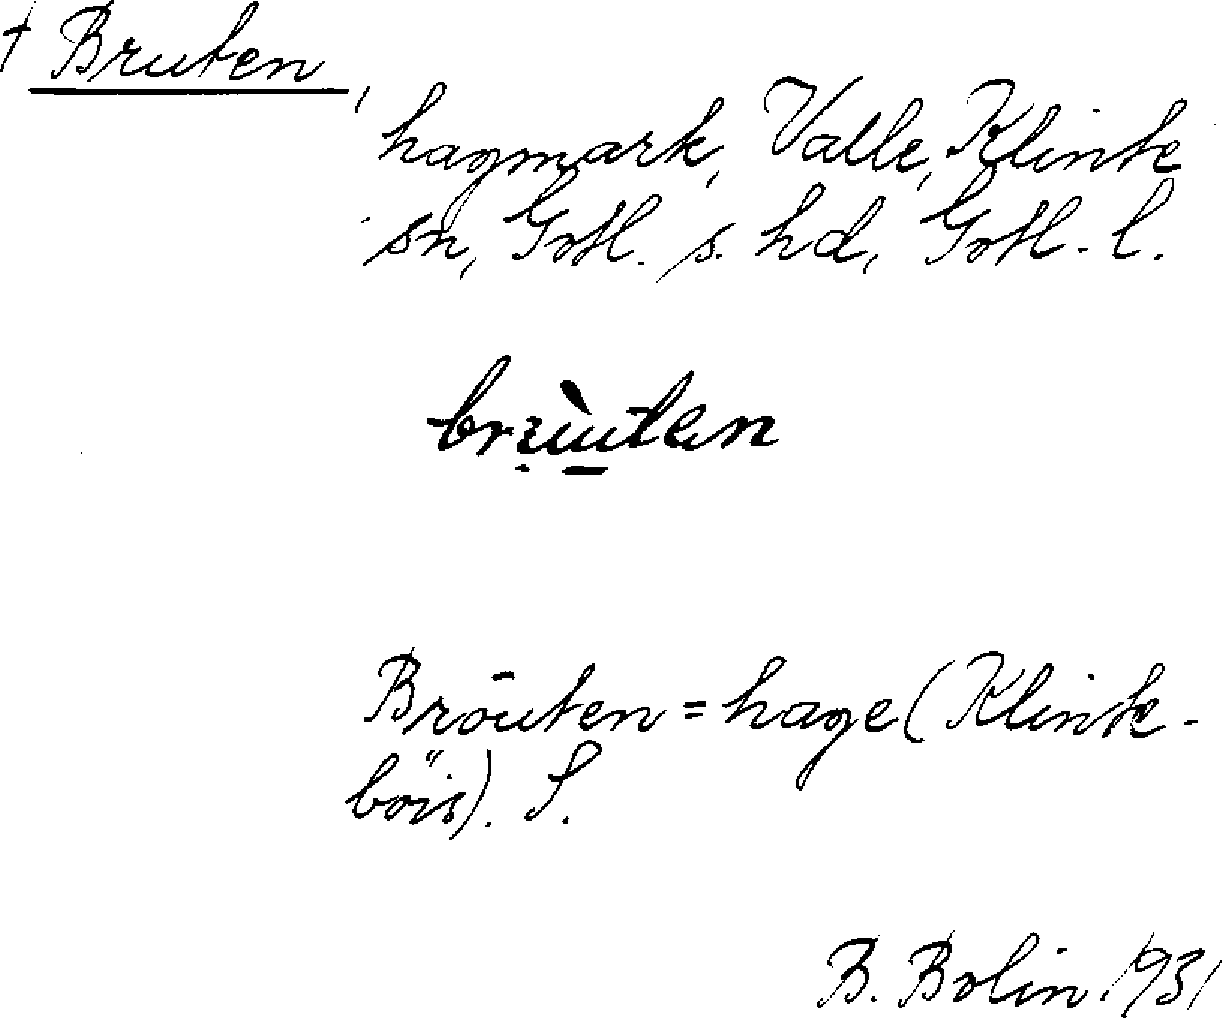 † Bruten,
hagmark, Valle, Klinte
sn, Gotl. s. hd, Gotl. l.
Brōuten = hage (Klinte-
böis). S.
B. Bolin 1931